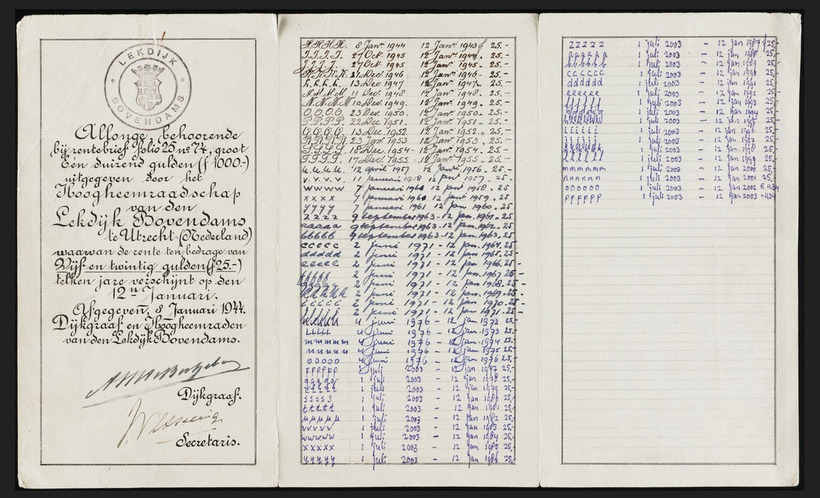 LEKDIJK
BOVENDAMS
Allonge, behoorende
bij rentebrief folio 25 nº 74, groot
Een duizend gulden (ƒ 1000.-)
uitgegeven door het
Hoogheemraadschap
van den
Lekdijk Bovendams
te Utrecht (Nederland)
waarvan de rente ten bedrage van
Vijf en twintig gulden (ƒ 25.-)
telken jare verschijnt op den
12en Januari.
Afgegeven, 8 Januari 1944.
Dijkgraaf en Hoogheemraden
van den Lekdijk Bovendams.
Dijkgraaf.
Secretaris.
H.H.H.H. 8 Janr 1944 12 Janr 1943 25.-
27 Oct. 1945 12 Janr 1944. 25.-
27 Oct. 1945 12 Janr 1945. 25.-
Dec 1946 12 Janr 1946. 25.-
13 Dec 1947 12 Janr 1947. 25.-
11 Dec 1948 12 Janr 1948. 25.-
10 Dec 1949. 12 Janr 1949. 25.-
O.O.O.O. 23 Dec 1950. 12 Janr 1950. 25.-
P.P.P.P. 22 Dec 1951. 12 Janr 1951. 25.-
Q.Q.Q.Q. 13 Dec. 1952 12 Janr 1952. 25.-
1953 12 Janr 1953. 25.-
18 Dec. 1954 12 Janr 1954. 25.-
17 Dec 1955 12 Janr 1955. 25.-
u.u.u.u. 12 april 1957 12 Janr 1956. 25.-
v.v.v.v. 11 januari 1958 12 jan 1957. 25.-
wwww 7 januari 1960 12 jan 1958. 25-
xxxx 7 januari 1960 12 jan 1959. 25-
yyyy 7 januari 1961 12 jan 1960. 25-
zzzz 9 september 1963 - 12 jan. 1961. 25-
aaaaa 9 september 1963 - 12 jan. 1962. 25-
bbbbb 9 september 1963 - 12 jan. 1963. 25-
ccccc 2 juni 1971 - 12 jan. 1964. 25-
ddddd 2 juni 1971 - 12 jan. 1965. 25-
eeeee 2 juni 1971 - 12 jan. 1966. 25-
2 juni 1971 - 12 jan. 1967. 25-
2 juni 1971 - 12 jan. 1968. 25-
2 juni 1971 - 12 jan. 1969. 25-
2 juni 1971 - 12 jan. 1970. 25-
2 juni 1971 - 12 jan. 1971. 25-
4 juni 1976 - 12 jan 1972 25-
4 juni 1976 - 12 jan 1973 25-
mmmmm 4 juni 1976 - 12 jan 1974 25-
nnnnn 4 juni 1976 - 12 jan 1975 25-
ooooo 4 juni 1976 - 12 jan 1976 25-
pppppp 1 juli 2003 - 12 jan 1977 25,-
1 juli 2003 - 12 jan 1978 25,-
1 juli 2003 - 12 jan 1979 25,-
sssss 1 juli 2003 - 12 jan 1980 25,-
ttttt 1 juli 2003 - 12 jan 1981 25,-
1 juli 2003 - 12 jan 1982 25,-
vvvvv 1 juli 2003 - 12 jan 1983 25,-
wwwww 1 juli 2003 - 12 jan 1984 25,-
xxxxx 1 juli 2003 - 12 jan 1985 25,-
yyyyy 1 juli 2003 - 12 jan 1986 25,-
zzzzz 1 juli 2003 - 12 jan 1987 ƒ25,-
1 juli 2003 - 12 jan 1988 25,-
1 juli 2003 - 12 jan 1989 25,-
cccccc 1 juli 2003 - 12 jan 1990 25,-
dddddd 1 juli 2003 - 12 jan 1991 25,-
eeeeee 1 juli 2003 - 12 jan 1992 25,-
1 juli 2003 - 12 jan 1993 25,-
1 juli 2003 - 12 jan 1994 25,-
1 juli 2003 - 12 jan 1995 25,-
iiiiii 1 juli 2003 - 12 jan 1996 25,-
1 juli 2003 - 12 jan 1997 25,-
1 juli 2003 - 12 jan 1998 25,-
1 juli 2003 - 12 jan 1999 25,-
mmmmmm 1 juli 2003 - 12 jan 2000 25,-
nnnnnn 1 juli 2003 - 12 jan 2001 25,-
oooooo 1 juli 2003 - 12 jan 2002
pppppp 1 juli 2003 - 12 jan 2003